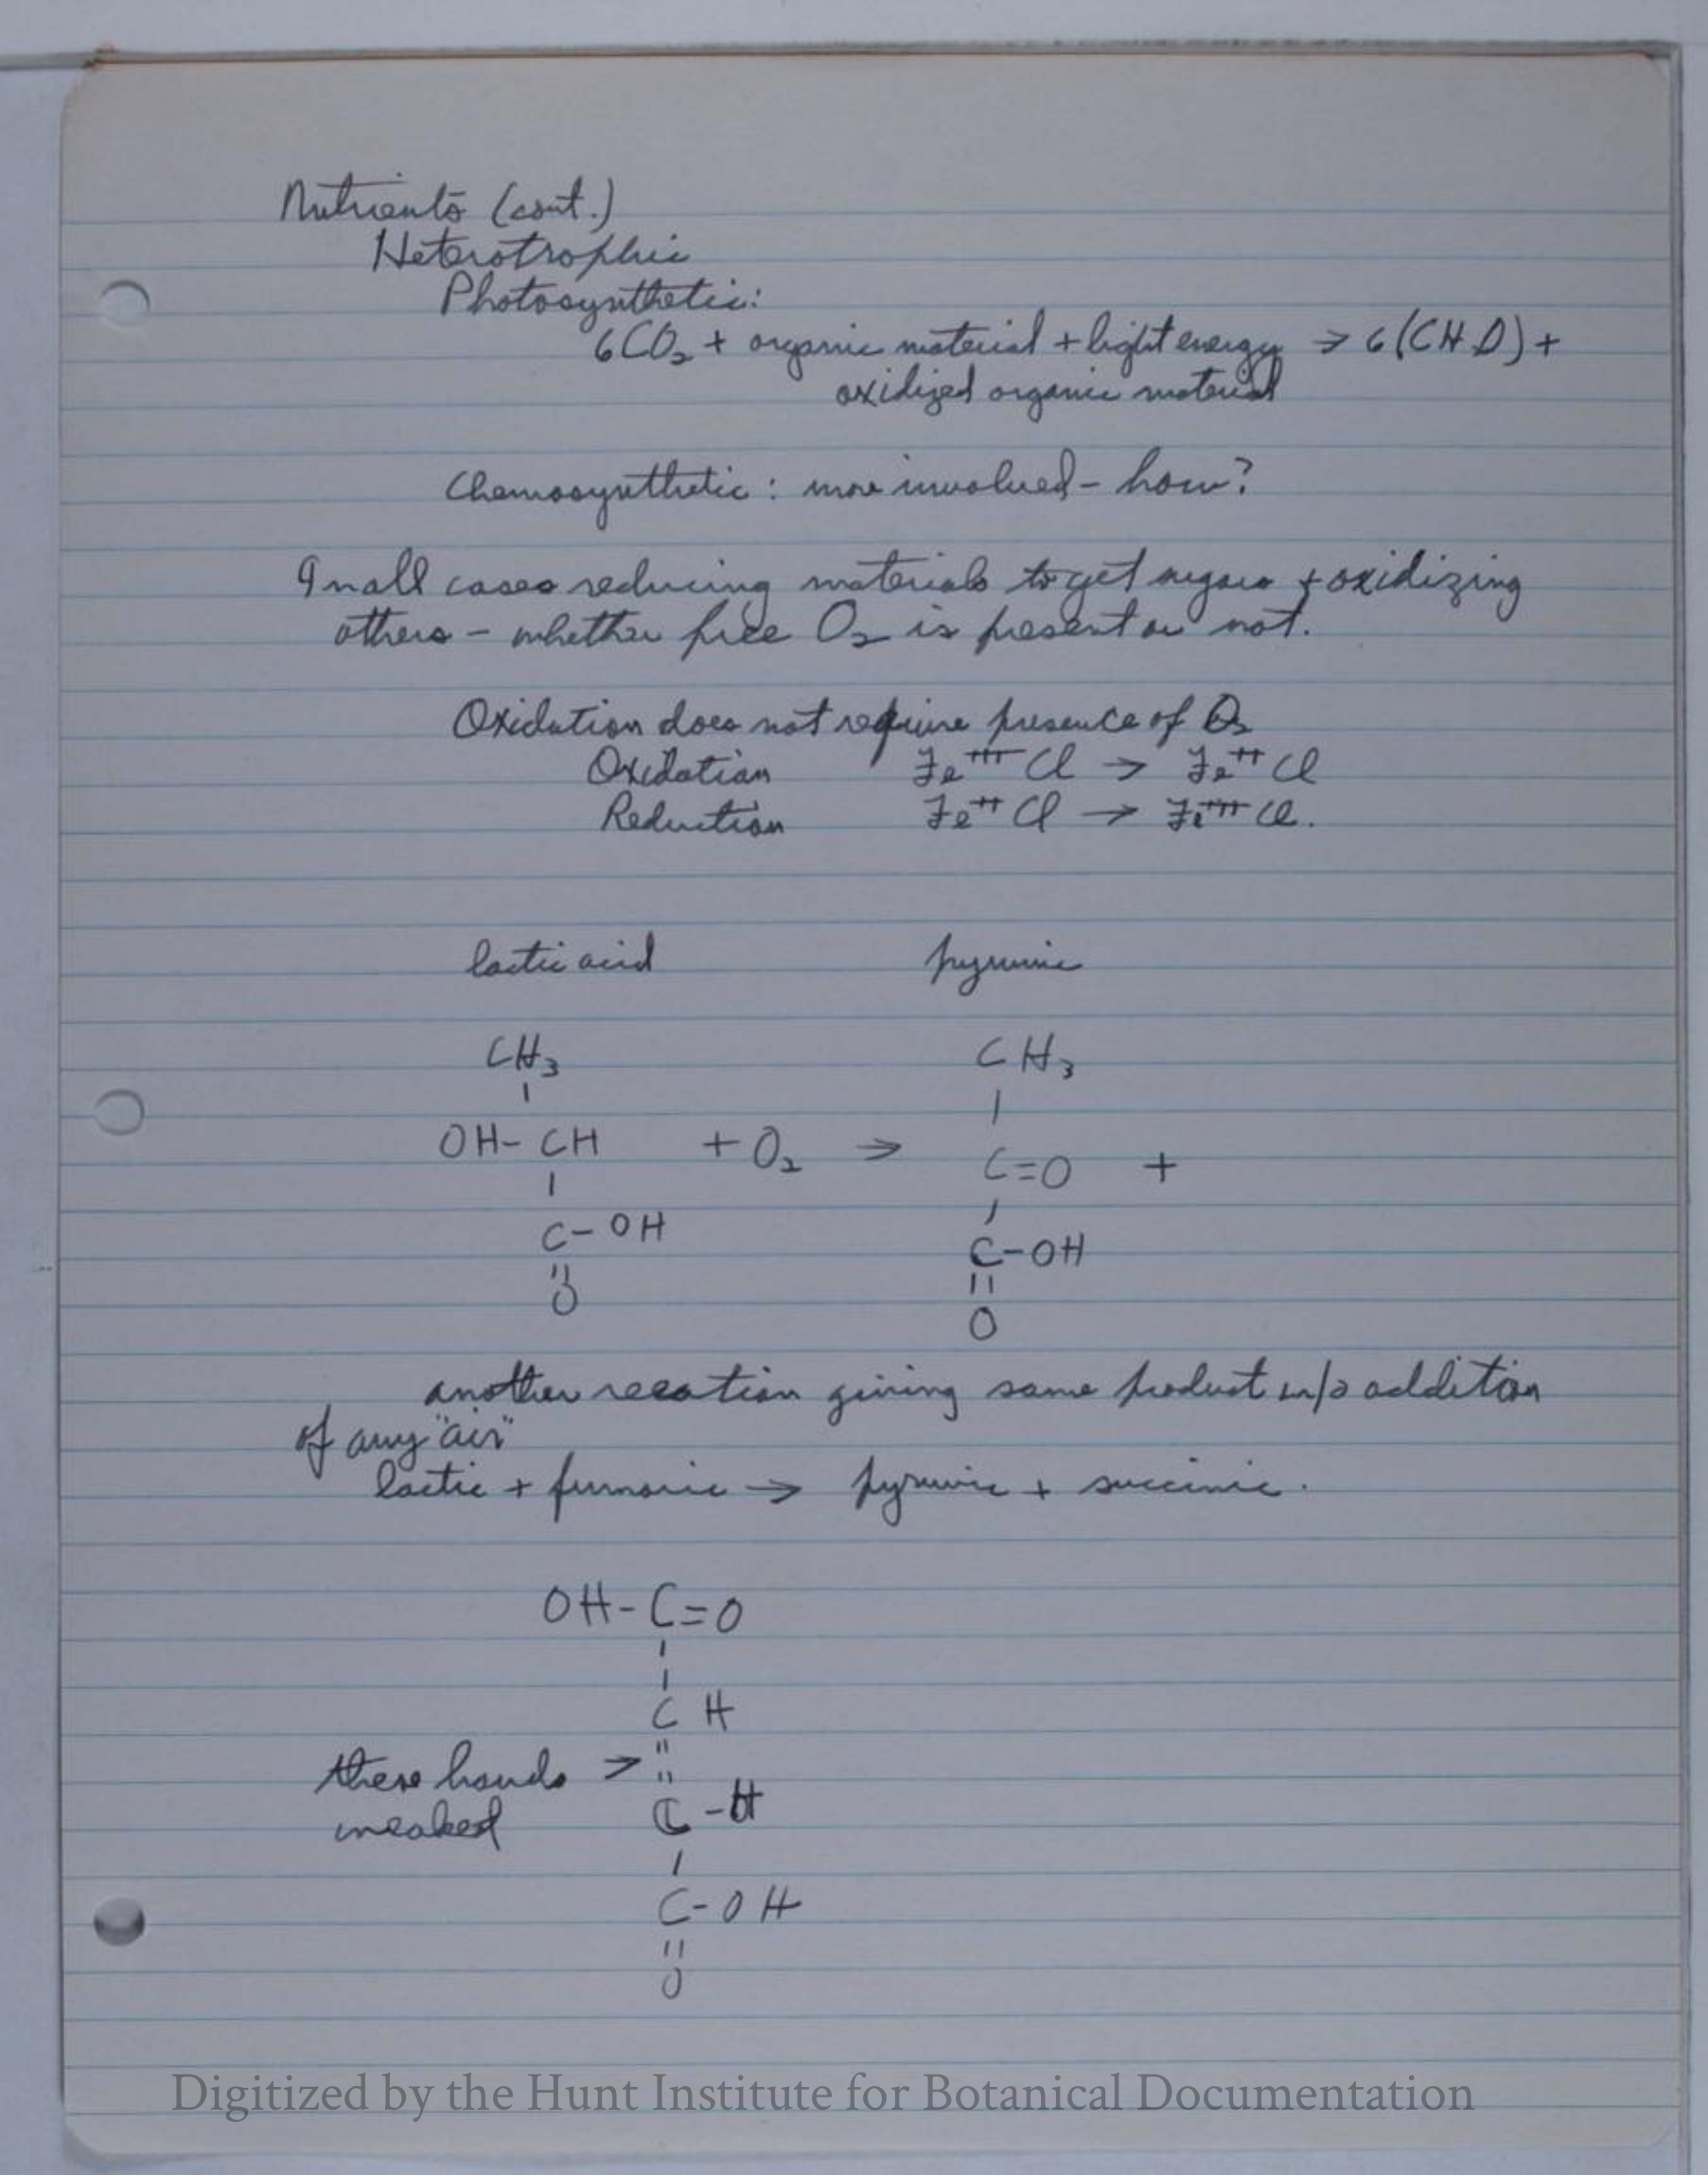 Nutrients (cont.)
Heterotrophic
Photosynthetic:
6CO₂ + organic material + light energy → 6(CH₂O) +
oxidized organic material
Chemosynthetic: more involved - how?
In all cases reducing materials to get sugars + oxidizing
others - whether free O₂ is present or not.
Oxidation does not require presence of O₂
Oxidation Fe⁺⁺⁺ Cl → Fe⁺⁺ Cl
Reduction Fe⁺⁺ Cl → Fe⁺⁺⁺ Cl.
lactic acid pyruvic
CH₃ CH₃
| |
OH- CH + O₂ → C=O +
| |
C-OH C-OH
|| ||
O O
another recation giving same product w/o addition
of any "air"
lactic + fumaric → pyruvic + succinic.
OH-C=O
|
|
C H
"
these bonds > "
weaked C -H
|
C-OH
||
O
Digitized by the Hunt Institute for Botanical Documentation